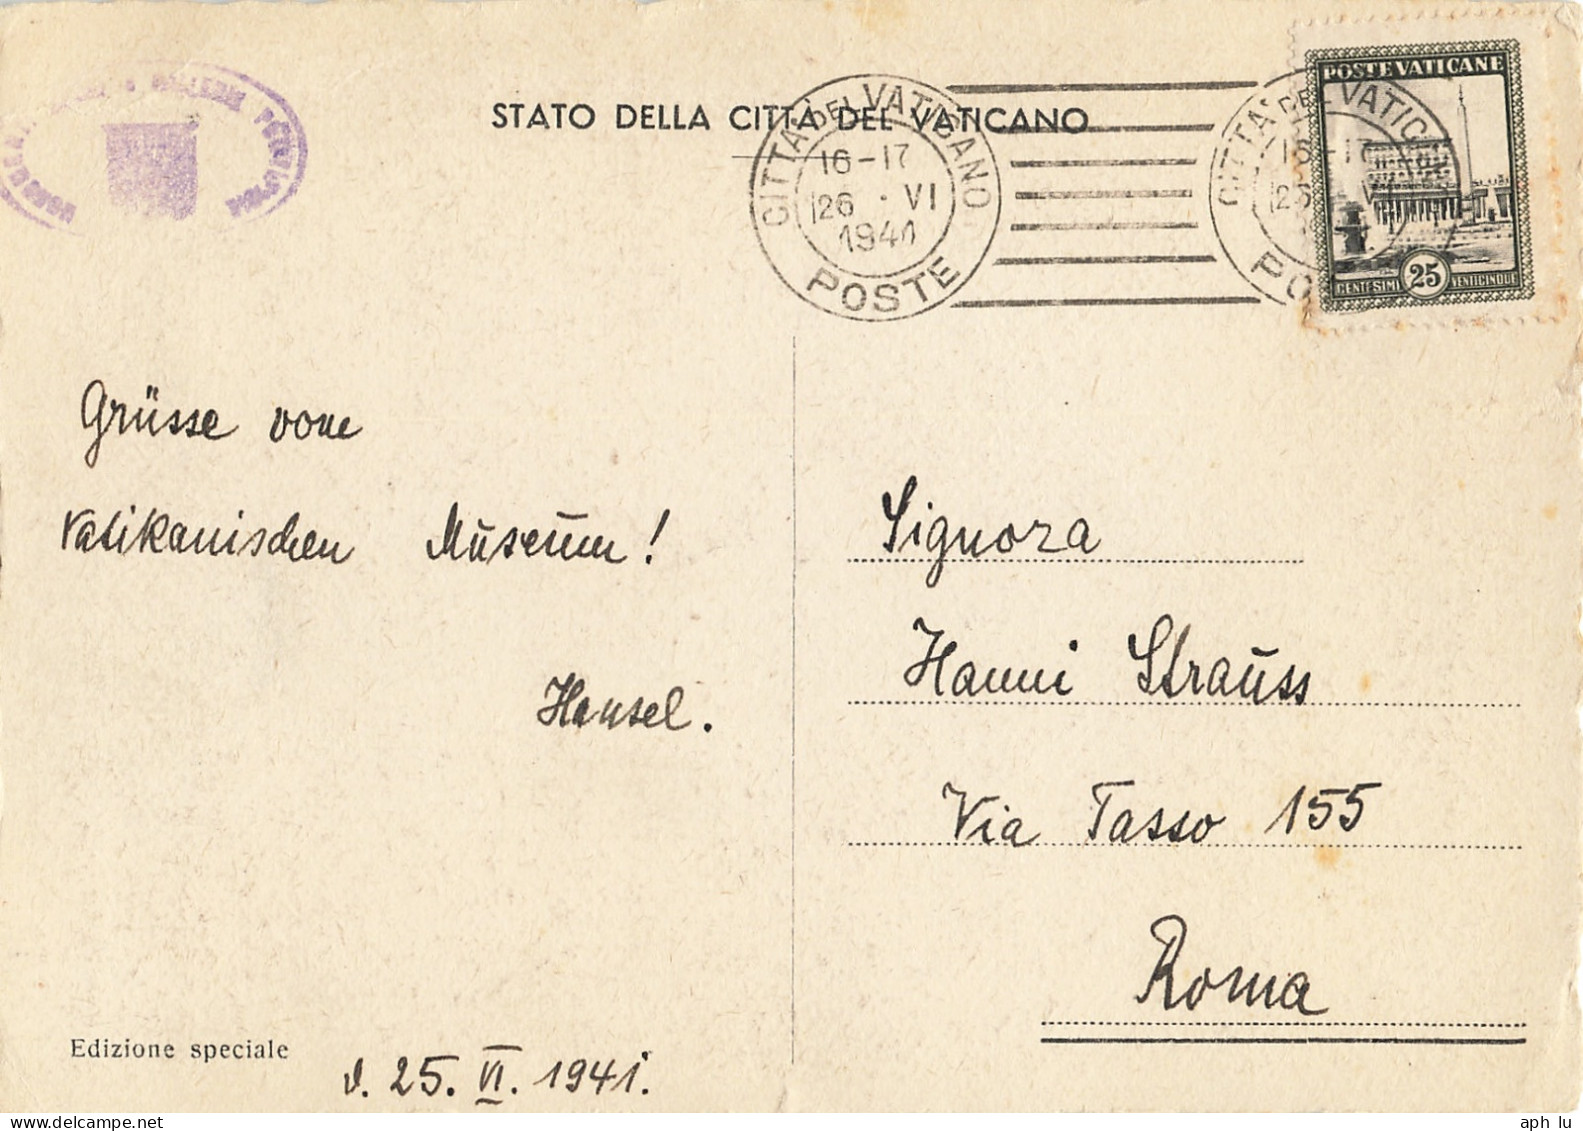 STATO DELLA CITTÀ DEL VATICANO
CITTÀ DEL VATICANO
16-17
26 · VI
1941
POSTE
CITTA DEL VATICANO
POSTE VATICANE
CENTESIMI 25 VENTICINQUE
Grüsse vom
Vatikanischen Museum!
Hansel.
Signora
Hanni Strauss
Via Tasso 155
Roma
Edizione speciale
d. 25. VI. 1941.
aph lu